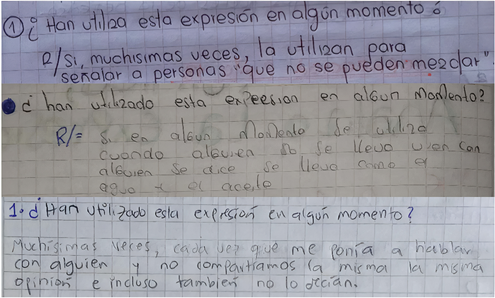 ① ¿ Han utiliza esta expresión en algún momento ?
R/ Si, muchisimas veces, la utilizan para
señalar a personas "que no se pueden mezclar"
¿ han utilizado esta expresion en algun Momento?
R/= Si en algun Momento Se utiliza
cuando alguien no se lleva bien con
alguien Se dice se lleva como el
agua y el aceite
1. ¿Han utilizado esta expresión en algún momento?
Muchísimas veces, cada vez que me ponía a hablar
con alguien y no compartíamos la misma la misma
opinión e incluso también no lo decían.